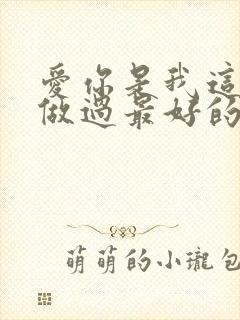 愛你是我這
做過最好的
萌萌的小瓏包